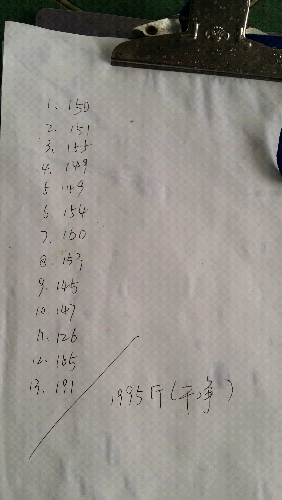 1. 150
2. 151
3. 155
4. 149
5. 149
6. 154
7. 160
8. 153
9. 145
10. 147
11. 126
12. 165
13. 191
1995斤(干净)